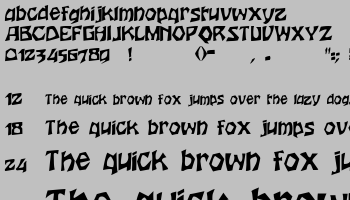 abcdefghijklmnopqrstuvwxyz
ABCDEFGHIJKLMNOPQRSTUVWXYZ
0123456780 ! ()= , . ":;
12 The quick brown fox jumps over the lazy dog
18 The quick brown fox jumps ov
24 The quick brown fox ju
The quick brow